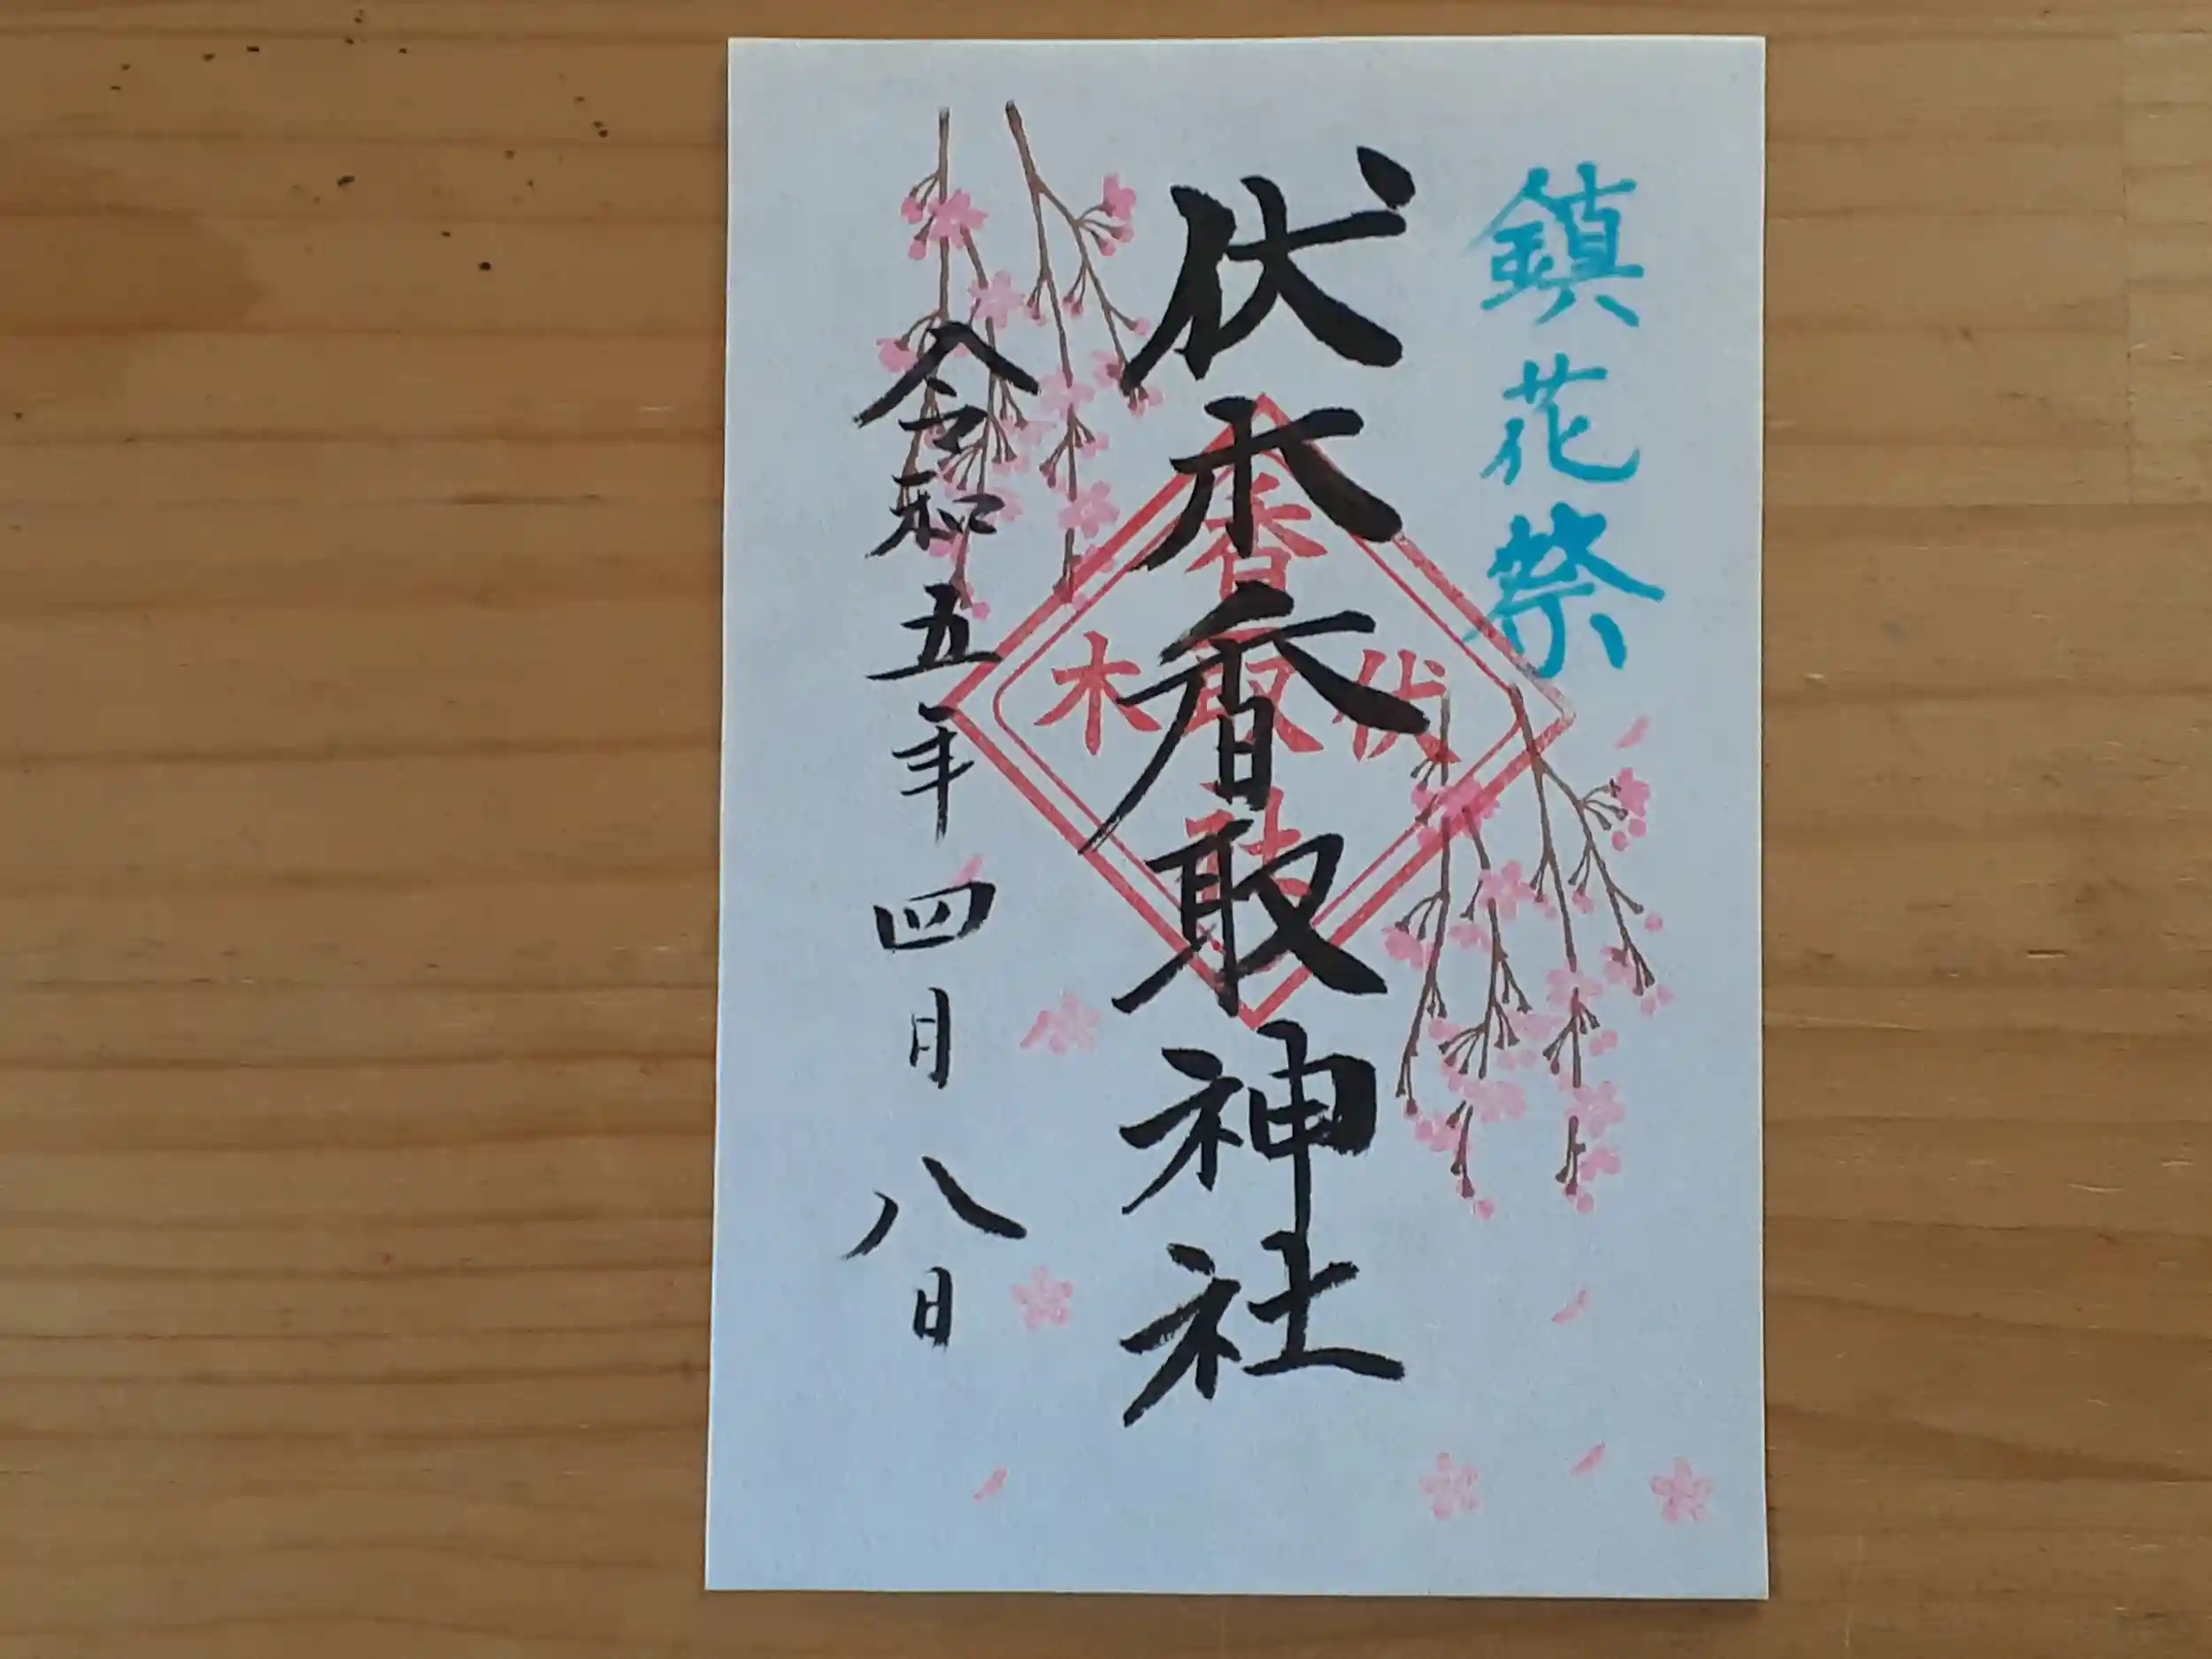 鎮花祭
伏木香取神社
香
伏取木
社
令和五年四月八日